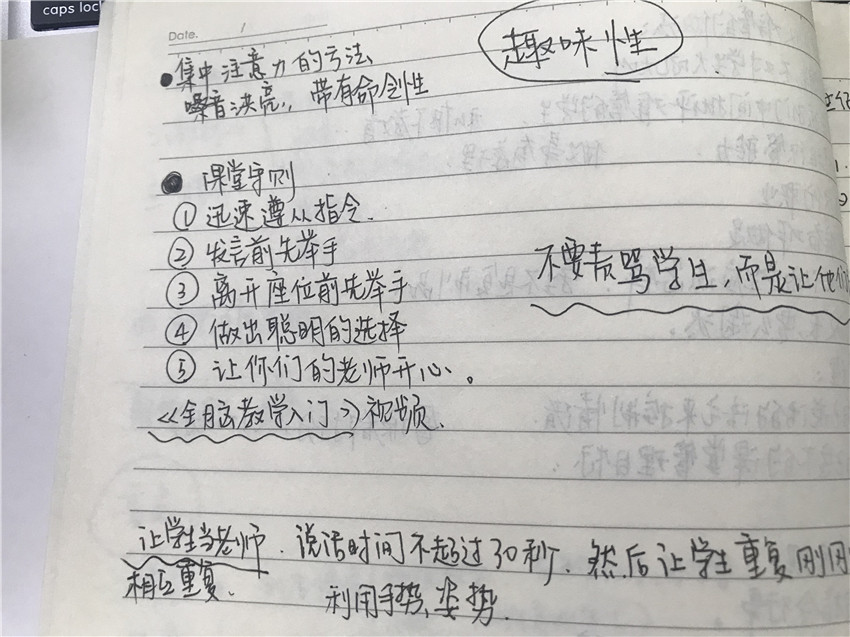 caps lock
Date.
趣味性
●集中注意力的方法
嗓音洪亮，带有命令性
● 课堂守则
① 迅速遵从指令.
② 发言前先举手
③ 离开座位前先举手
④ 做出聪明的选择
⑤ 让你们的老师开心。
不要责骂学生，而是让他们
《全脑教学入门》视频.
让学生当老师. 说话时间不超过30秒. 然后让学生重复刚刚
相互重复.
利用手势、姿势.